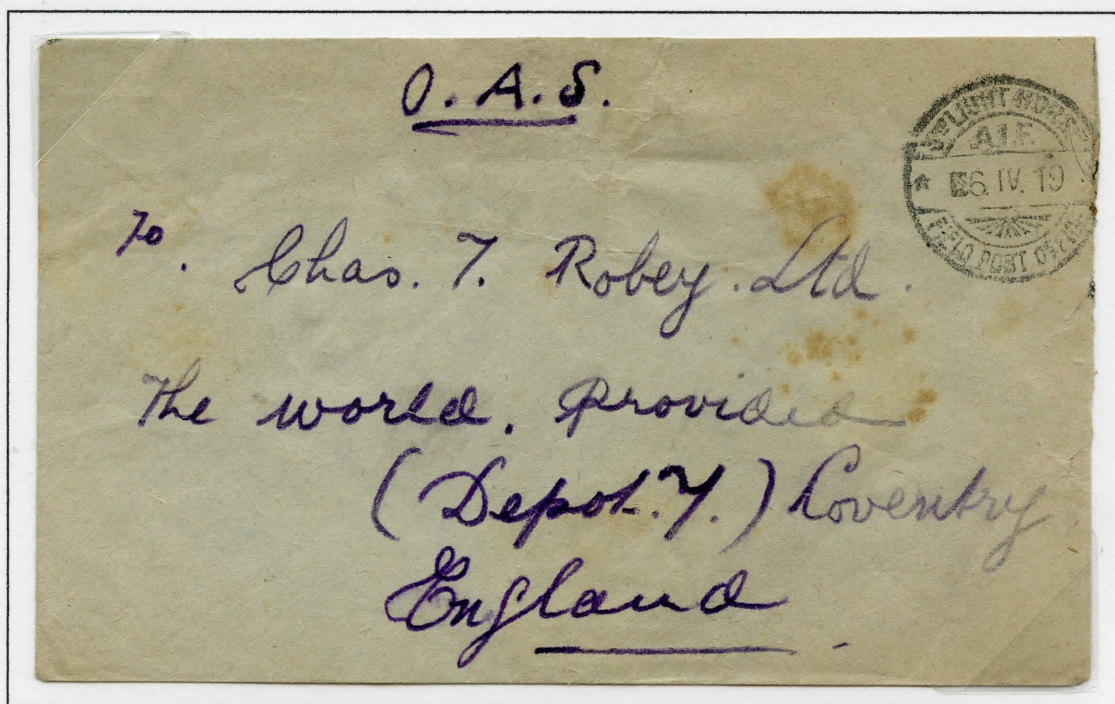 O.A.S.
LIGHT HORSE
A.I.F.
6. IV. 19
FIELD POST OFFICE
To
Chas. T. Robey. Ltd.
The world. Provided
(Depot. Y.) Coventry
England